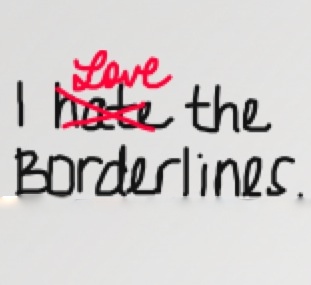 Love
I hate the
Borderlines.